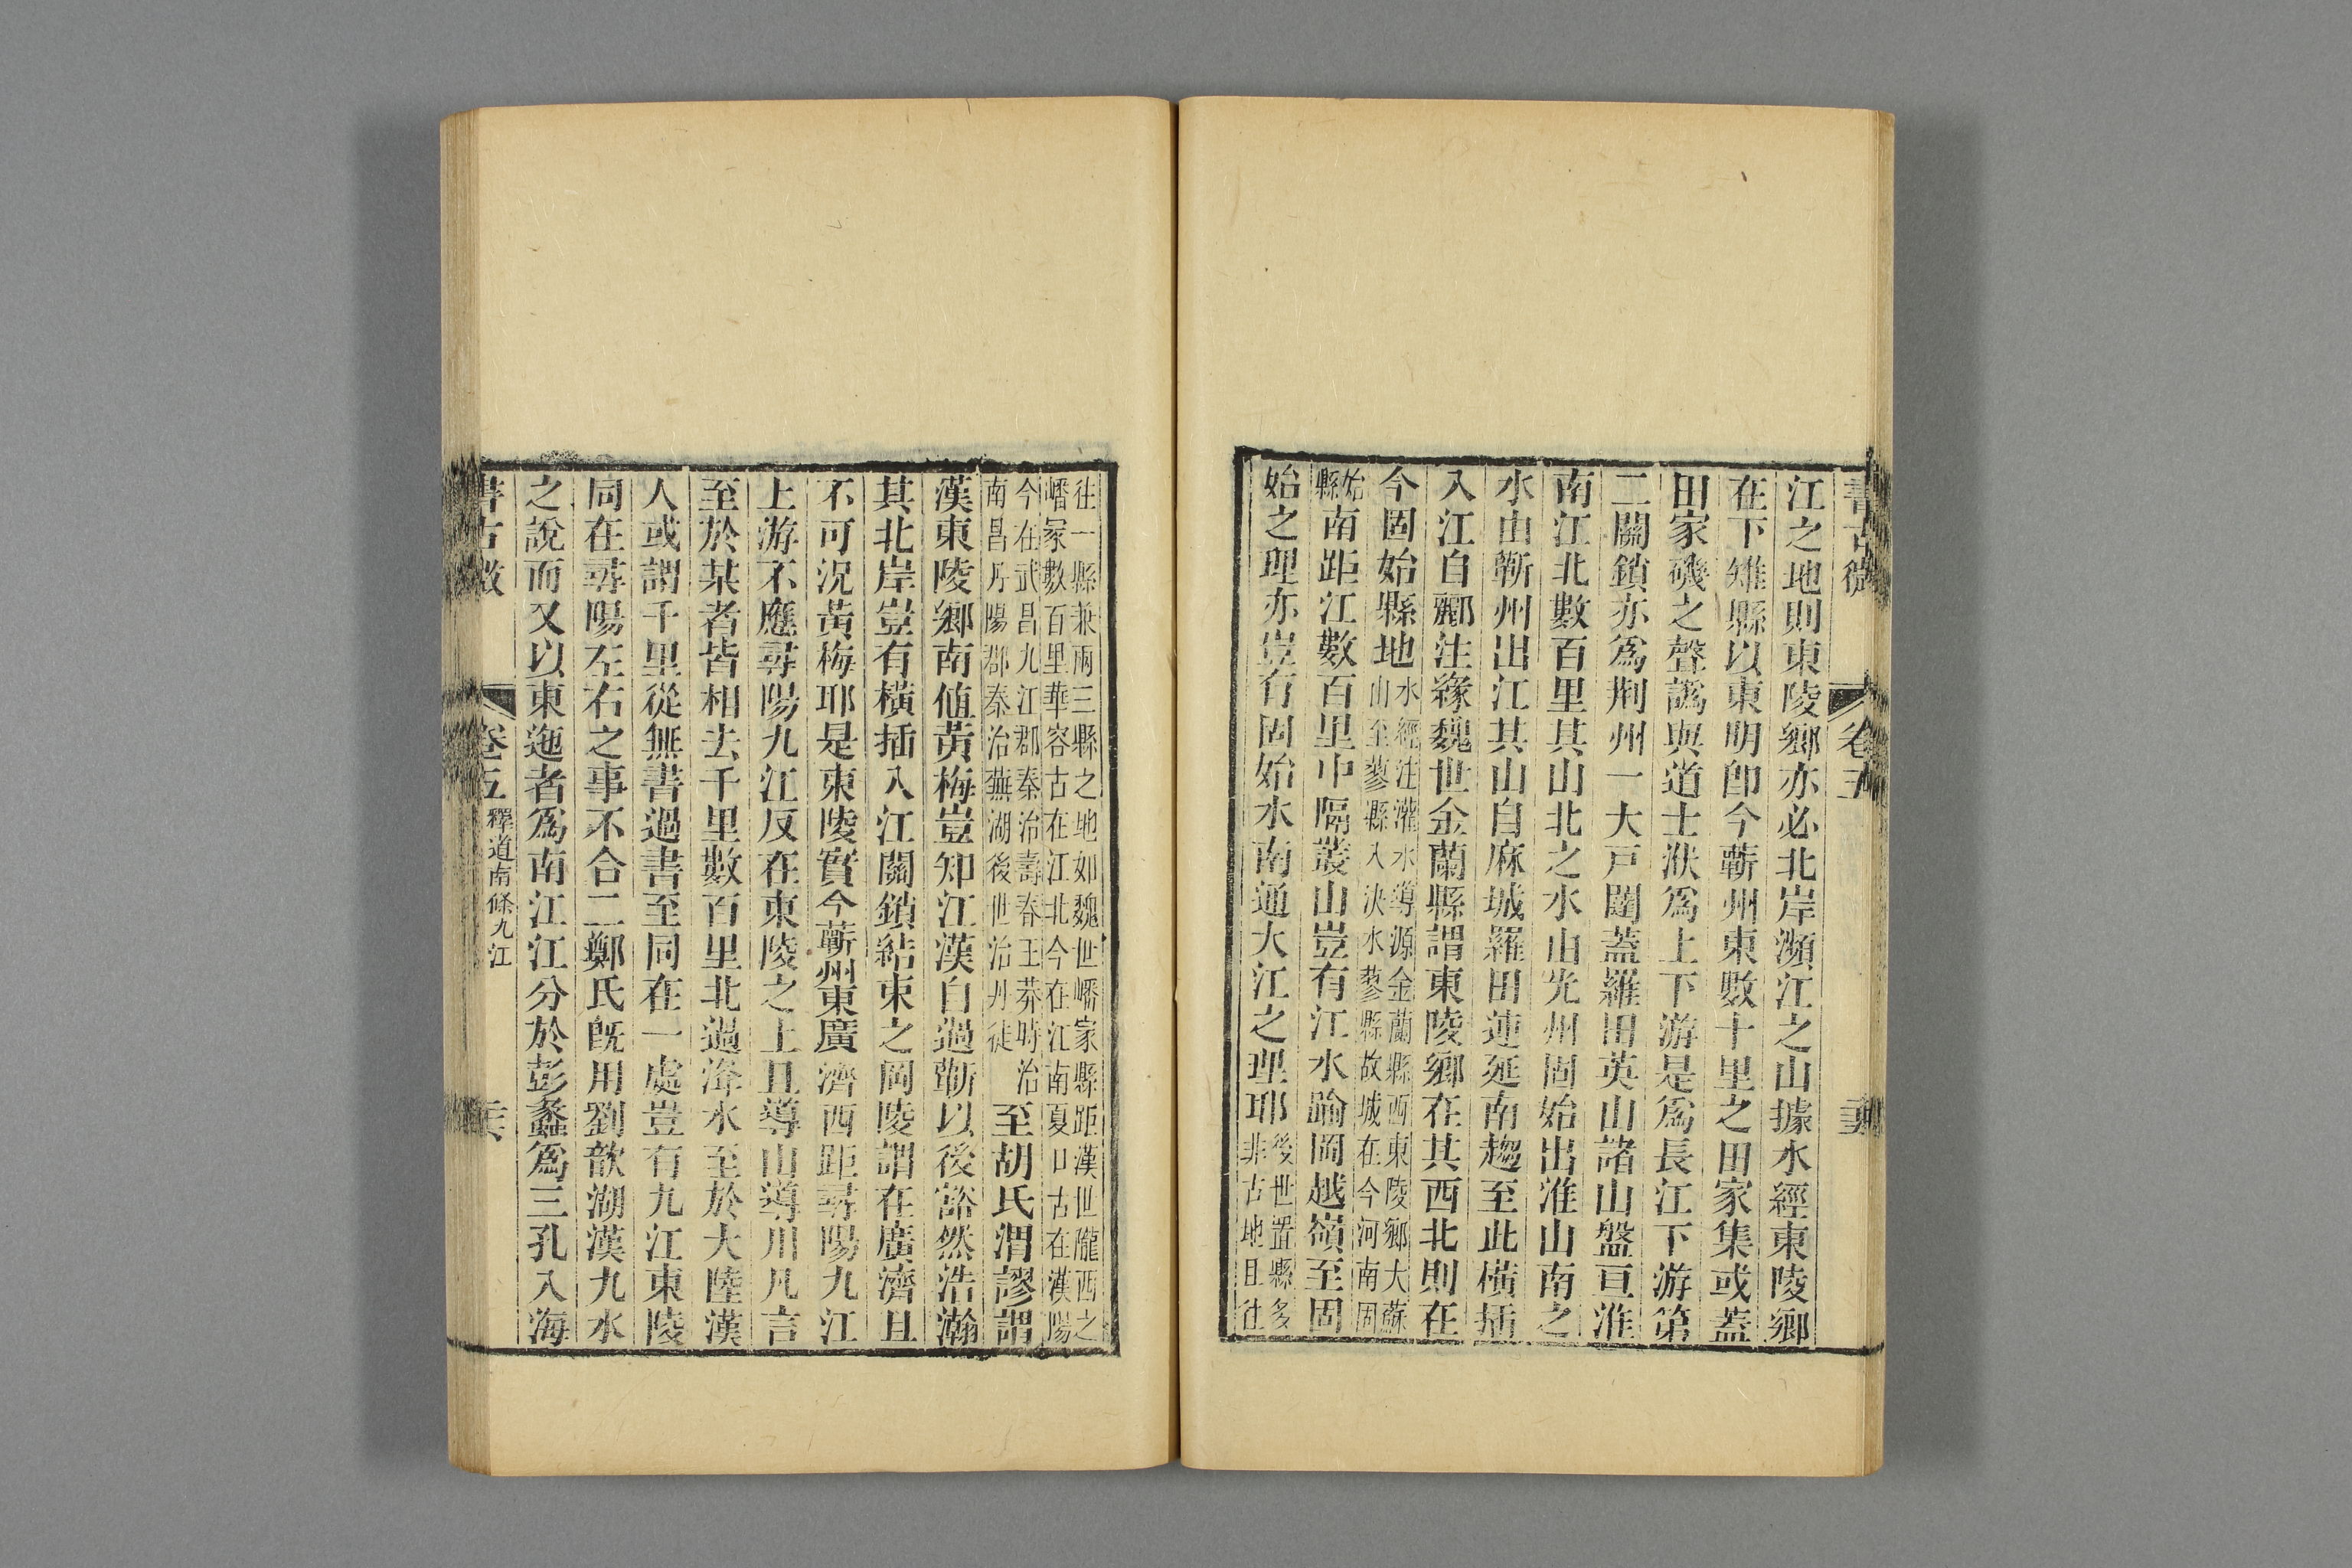 書古微 卷五
江之地則東陵鄉亦必北岸瀕江之山據水經東陵鄉
在下雉縣以東明卽今蘄州東數十里之田家集或蓋
田家磯之聲譌與道士洑爲上下游是爲長江下游第
二關鎖亦爲荆州一大戸闥蓋羅田英山諸山盤亘淮
南江北數百里其山北之水由光州固始出淮山南之
水由蘄州出江其山自麻城羅田連延南趨至此橫插
入江自酈注緣魏世金蘭縣謂東陵鄉在其西北則在
今固始縣地水經注灌水導源金蘭縣西東陵鄉大蘇
山至蓼縣入決水蓼縣故城在今河南固
始
縣南距江數百里中隔叢山豈有江水踰岡越嶺至固
始之理亦豈有固始水南通大江之理耶後世置縣多
非古地且往
往一縣兼兩三縣之地如魏世嶓冢縣距漢世隴西之
嶓冢數百里華容古在江北今在江南夏口古在漢陽
今在武昌九江郡秦治壽春王莽時治
南昌丹陽郡秦治蕪湖後世治丹徒至胡氏渭謬謂
漢東陵鄉南値黃梅豈知江漢自過蘄以後豁然浩瀚
其北岸豈有橫插入江關鎖結束之岡陵謂在廣濟且
不可況黃梅耶是東陵實今蘄州東廣濟西距尋陽九江
上游不應尋陽九江反在東陵之上且導山導川凡言
至於某者皆相去千里數百里北過洚水至於大陸漢
人或謂千里從無書過書至同在一處豈有九江東陵
同在尋陽左右之事不合二鄭氏旣用劉歆湖漢九水
之說而又以東迤者爲南江江分於彭蠡爲三孔入海
書古微 卷五 釋道南條九江